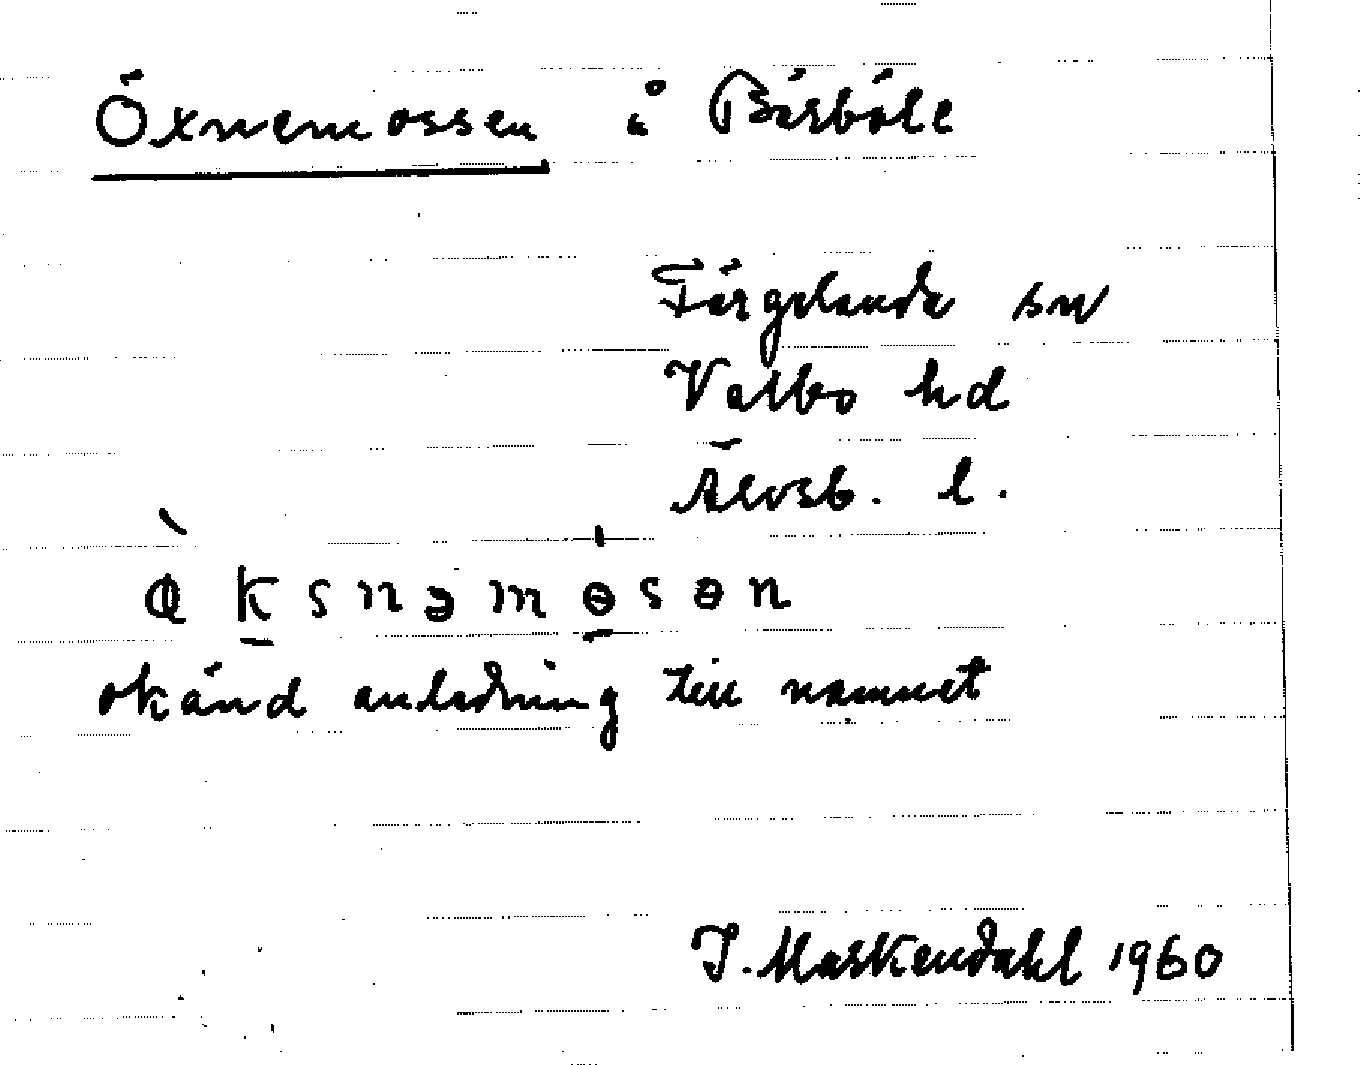 Öxnemossen i Bärböle
Färgelanda sn
Valbo hd
Älvsb. l.
ò̱ksnəmɵsɵn
okänd anledning till namnet
J. Markendahl 1960